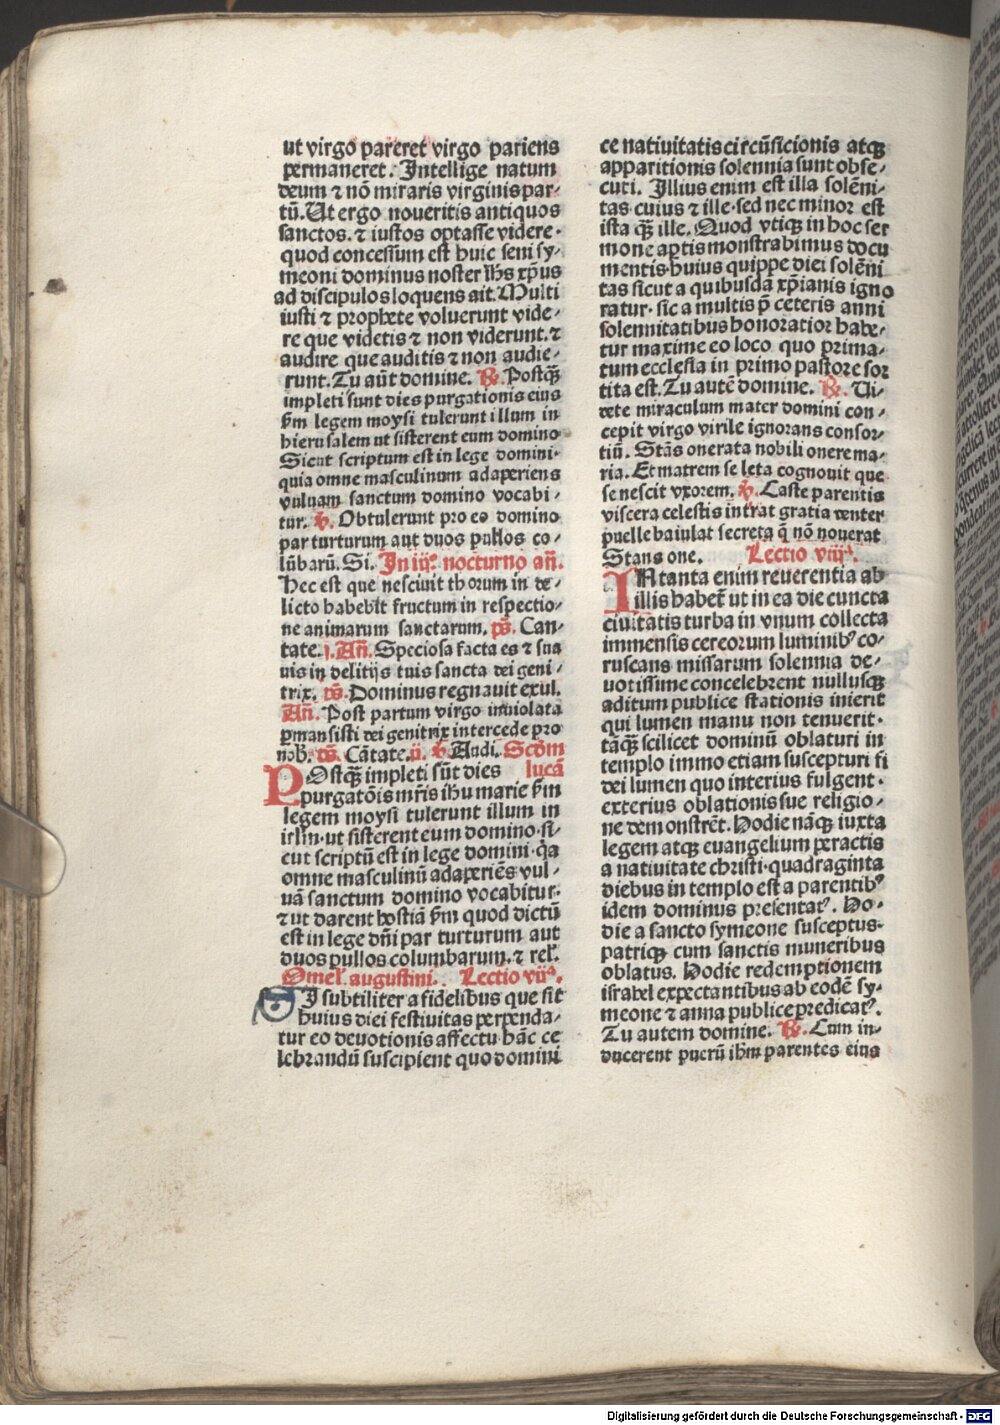 ut virgo pareret virgo pariens
permaneret. Intellige natum
deum ⁊ nō miraris virginis par-
tū. Ut ergo noveritis antiquos
sanctos. ⁊ iustos optasse videre.
quod concessum est huic seni sy-
meoni dominus noster ihs xp̄us
ad discipulos loquens ait. Multi
iusti ⁊ prophete voluerunt vide-
re que videtis ⁊ non viderunt. ⁊
audire que auditis ⁊ non audie-
runt. Tu aūt domine. ℟. Postqȝ
impleti sunt dies purgationis eius
ẜm legem moysi tulerunt illum in
hierusalem ut sisterent eum domino
Sicut scriptum est in lege domini.
quia omne masculinum adaperiens
vulvam sanctum domino vocabi-
tur. ℣. Obtulerunt pro eo domino
par turturum aut duos pullos co-
lūbarū. Si. In iij°. nocturno an̄.
Hec est que nescivit thorum in de-
licto habebit fructum in respectio-
ne animarum sanctarum. ps̄. Can-
tate. j. An̄. Speciosa facta es ⁊ sua
vis in delitijs tuis sancta dei geni-
trix. ps̄. Dominus regnauit exul.
An̄. Post partum virgo inuiolata
ꝑmansisti dei genitrix intercede pro
nob̄. ps̄. Cātate. ij. ℣ Audi. Scd̄m
POstqȝ impleti sūt dies lucā
purgatōis mr̄is ihu marie ẜm
legem moysi tulerunt illum in
irlm. ut sisterent eum domino. si-
cut scriptū est in lege domini. q̇a
omne masculinū adaperiēs vul-
uā sanctum domino vocabitur.
⁊ ut darent hostiā ẜm quod dictū
est in lege dn̄i par turturum aut
duos pullos columbarum. ⁊ rel̄.
Omel̄. augustini. Lectio vijᵃ.
SI subtiliter a fidelibus que sit
huius diei festiuitas perpenda-
tur eo deuotionis affectu hāc ce
lebrandū suscipient quo domini
ce natiuitatis circūsicionis atqȝ
apparitionis solennia sunt obse-
cuti. Illius enim est illa solēni-
tas cuius ⁊ ille. sed nec minor est
ista qȝ ille. Quod vtiqȝ in hoc ser
mone aptis monstrabimus docu
mentis. huius quippe diei solēni
tas sicut a quibusdā xp̄ianis igno
ratur. sic a multis p̄ ceteris anni
solennitatibus honoratior habe-
tur maxime eo loco quo prima-
tum ecclesia in primo pastore sor
tita est. Tu autē domine. ℟. Vi-
dete miraculum mater domini con-
cepit virgo virile ignorans consor-
tiū. Stās onerata nobili onere ma-
ria. Et matrem se leta cognouit que
se nescit vxorem. ℣. Caste parentis
viscera celestis intrat gratia venter
puelle baiulat secreta q̄ nō nouerat
Stans one. Lectio viijᵃ.
IN tanta enim reuerentia ab
illis habet̄ ut in ea die cuncta
ciuitatis turba in vnum collecta
immensis cereorum luminibꝰ co-
ruscans missarum solennia de-
uotissime concelebrent nullusqȝ
aditum publice stationis inierit
qui lumen manu non tenuerit.
tāqȝ scilicet dominū oblaturi in
templo immo etiam suscepturi fi
dei lumen quo interius fulgent.
exterius oblationis sue religio-
ne demonstrēt. Hodie nāqȝ iuxta
legem atqȝ euangelium peractis
a natiuitate christi. quadraginta
diebus in templo est a parentibꝰ
idem dominus presentatᷣ. Ho-
die a sancto symeone susceptus.
patriqȝ cum sanctis muneribus
oblatus. Hodie redemptionem
israhel expectantibus ab eodē sy-
meone ⁊ anna publice predicatᷣ.
Tu autem domine. ℟. Cum in-
ducerent puerū ihm parentes eius
Digitalisierung gefördert durch die Deutsche Forschungsgemeinschaft - DFG